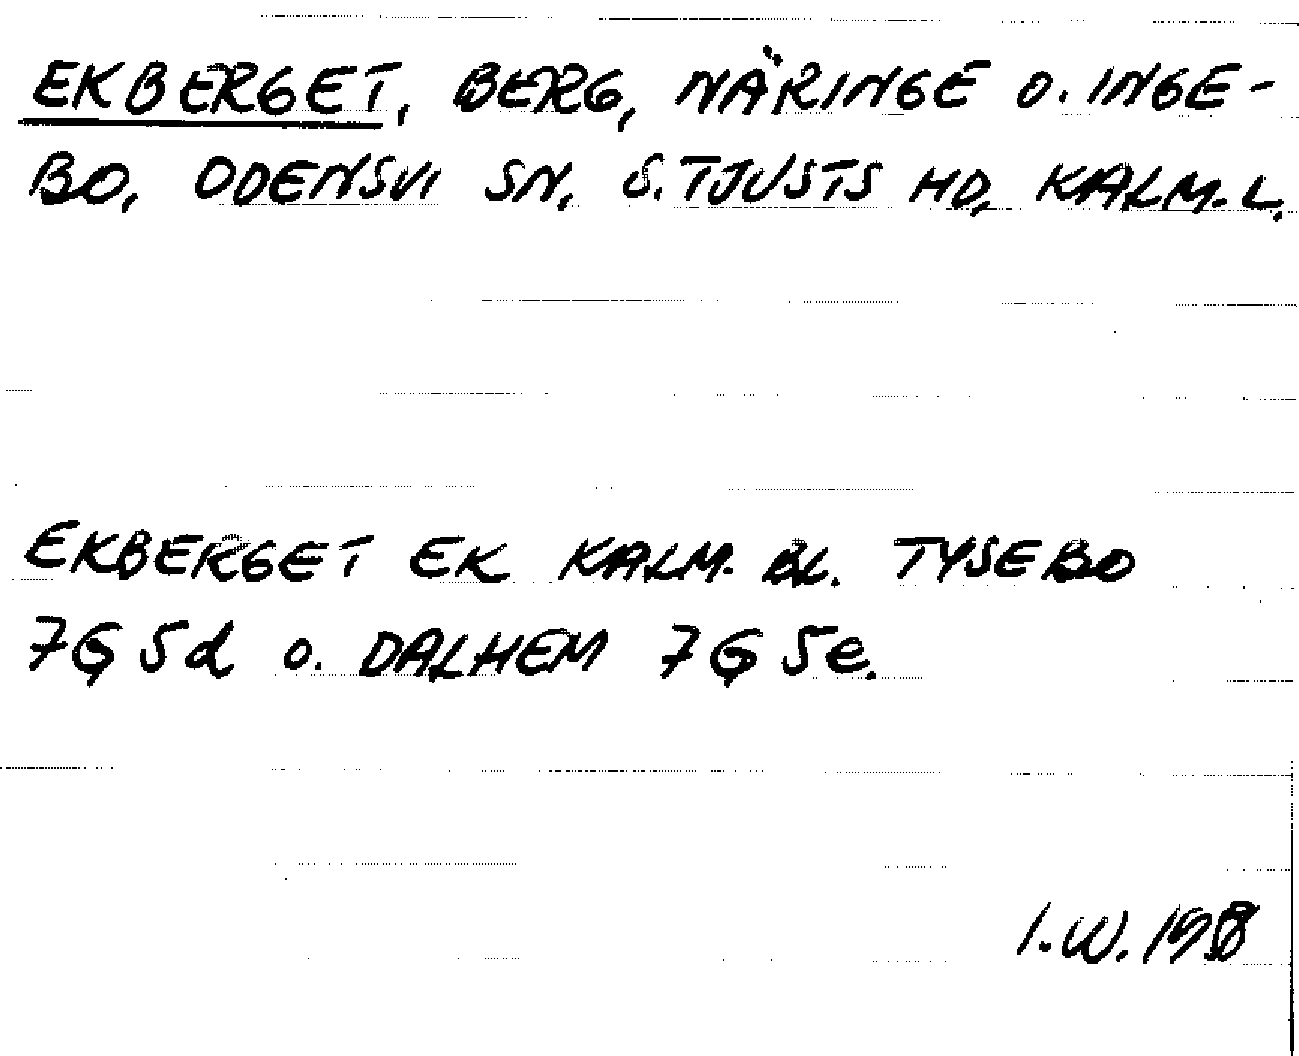 EKBERGET, BERG, NÄRINGE O. INGE-
BO, ODENSVI SN, S. TJUSTS HD, KALM. L.
EKBERGET EK KALM. BL. TYSEBO
7G 5d o. DALHEM 7G 5e.
I.W.